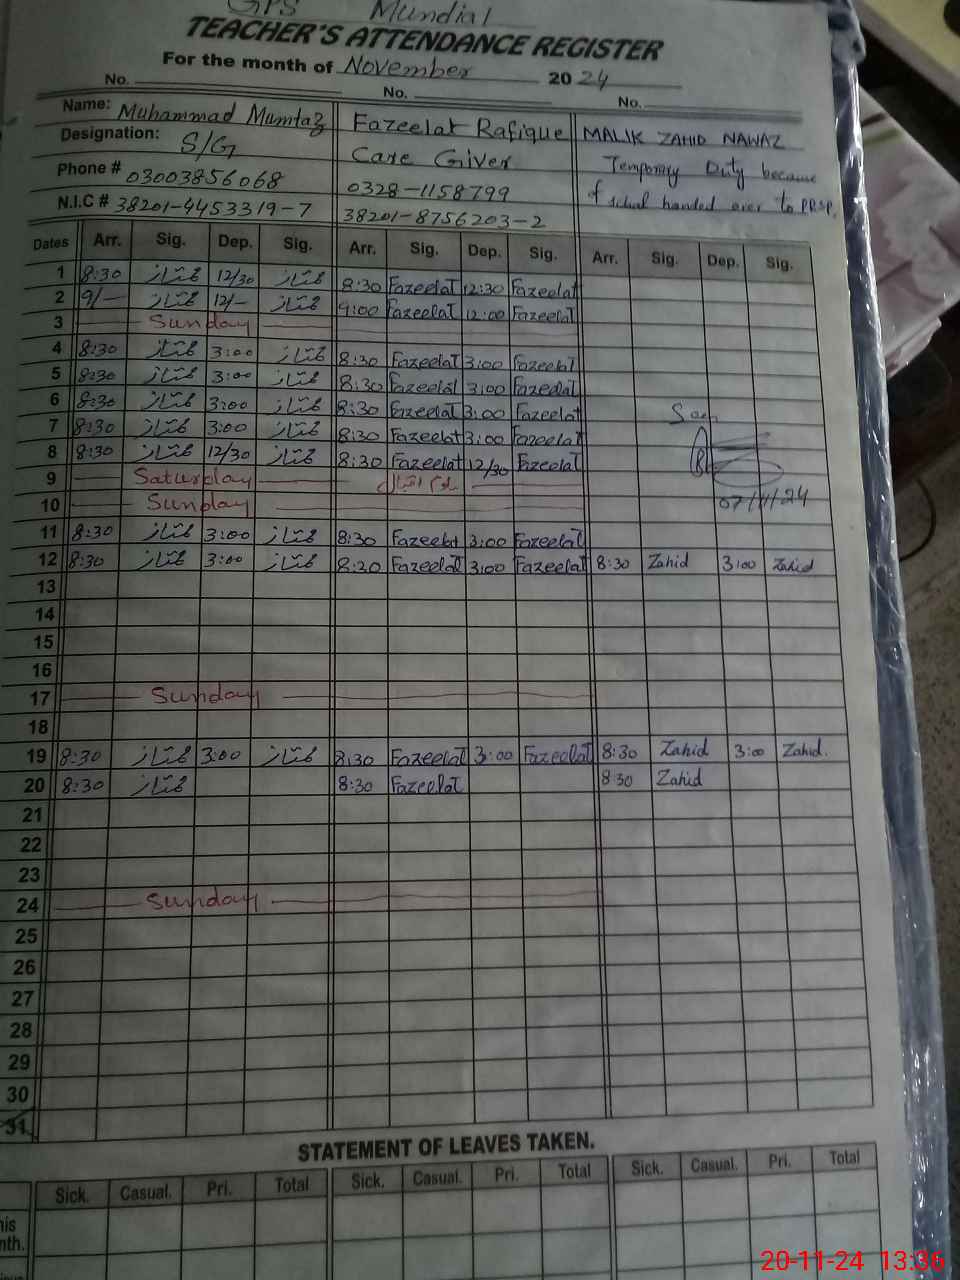 GPS Mundial
TEACHER'S ATTENDANCE REGISTER
For the month of November 2024
No. No. No.
Name: Muhammad Mumtaz Fazeelat Rafique MALIK ZAHID NAWAZ
Designation: S/G Care Giver Temporary Duty because
Phone # 03003856068 0328-1158799 of school handed over to PRSP.
N.I.C # 38201-4453319-7 38201-8756203-2
Dates Arr. Sig. Dep. Sig. Arr. Sig. Dep. Sig. Arr. Sig. Dep. Sig.
1 8:30 ممتاز 12/30 ممتاز 8:30 Fazeelat 12:30 Fazeelat
2 9/— ممتاز 12/- ممتاز 9:00 Fazeelat 12:00 Fazeelat
3 Sunday
4 8:30 ممتاز 3:00 ممتاز 8:30 Fazeelat 3:00 Fazeelat
5 8:30 ممتاز 3:00 ممتاز 8:30 Fazeelat 3:00 Fazeelat
6 8:30 ممتاز 3:00 ممتاز 8:30 Fazeelat 3:00 Fazeelat
7 8:30 ممتاز 3:00 ممتاز 8:30 Fazeelat 3:00 Fazeelat
8 8:30 ممتاز 12/30 ممتاز 8:30 Fazeelat 12/30 Fazeelat
9 Saturday یوم اقبال
10 Sunday
07/11/24
11 8:30 ممتاز 3:00 ممتاز 8:30 Fazeelat 3:00 Fazeelat
12 8:30 ممتاز 3:00 ممتاز 8:30 Fazeelat 3:00 Fazeelat 8:30 Zahid 3:00 Zahid
13
14
15
16
17 Sunday
18
19 8:30 ممتاز 3:00 ممتاز 8:30 Fazeelat 3:00 Fazeelat 8:30 Zahid 3:00 Zahid.
20 8:30 ممتاز 8:30 Fazeelat 8:30 Zahid
21
22
23
24 Sunday
25
26
27
28
29
30
31
STATEMENT OF LEAVES TAKEN.
Sick. Casual. Pri. Total Sick. Casual. Pri. Total Sick. Casual. Pri. Total
his
nth.
20-11-24 13:36